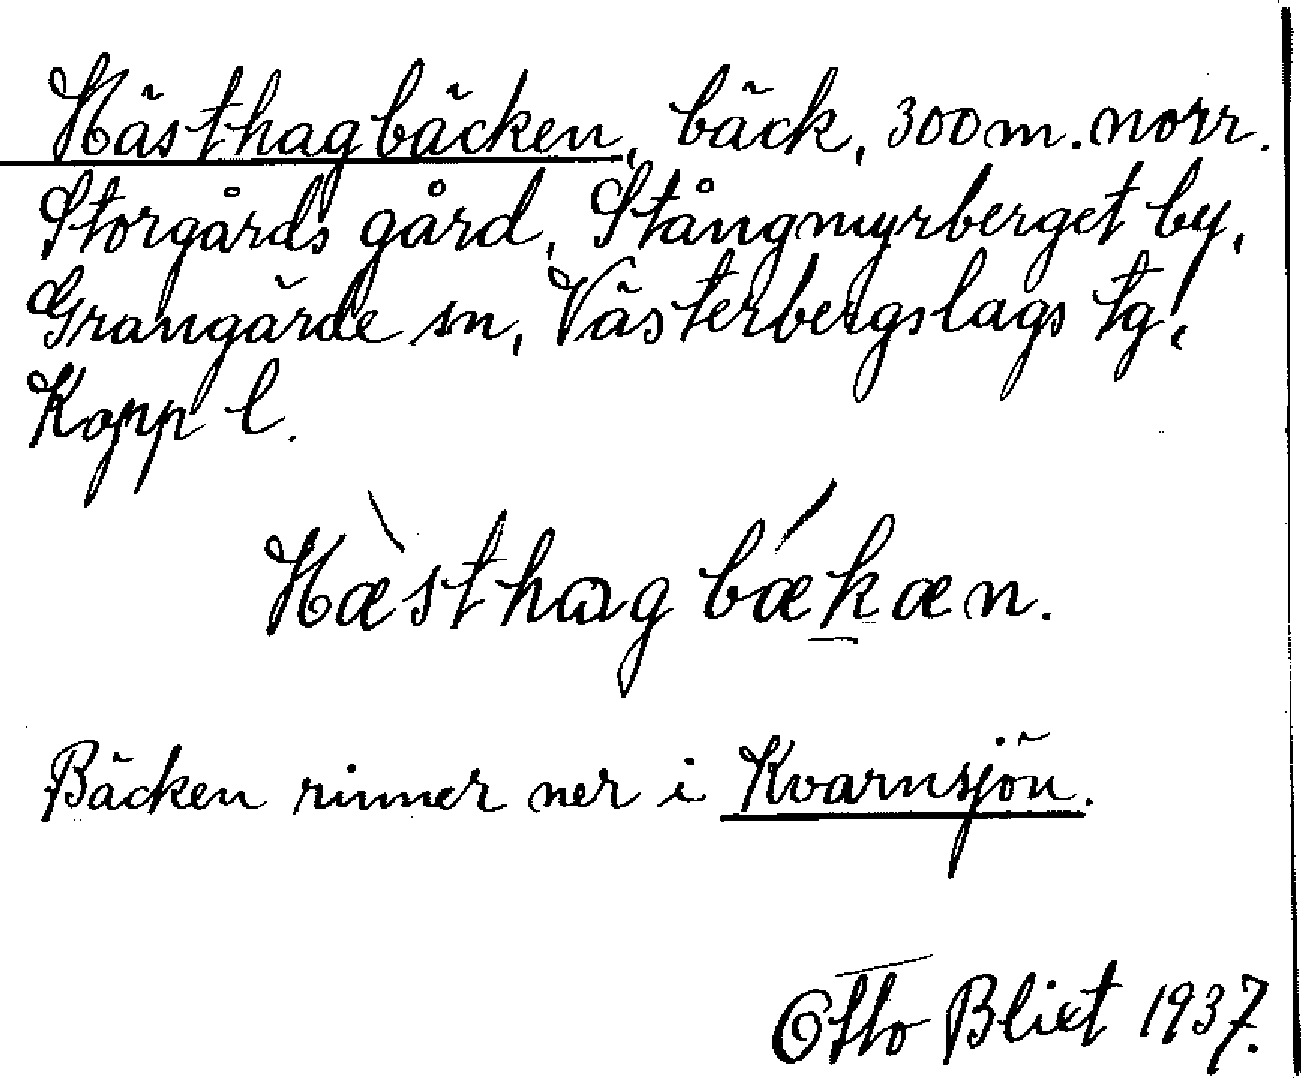 Hästhagbäcken, bäck, 300 m. norr.
Storgårds gård, Stångmyrberget by,
Grangärde sn, Västerbergslags tg,
Kopp l.
Hæ̀sthagbǽkæn.
Bäcken rinner ner i Kvarnsjön.
Otto Blixt 1937.